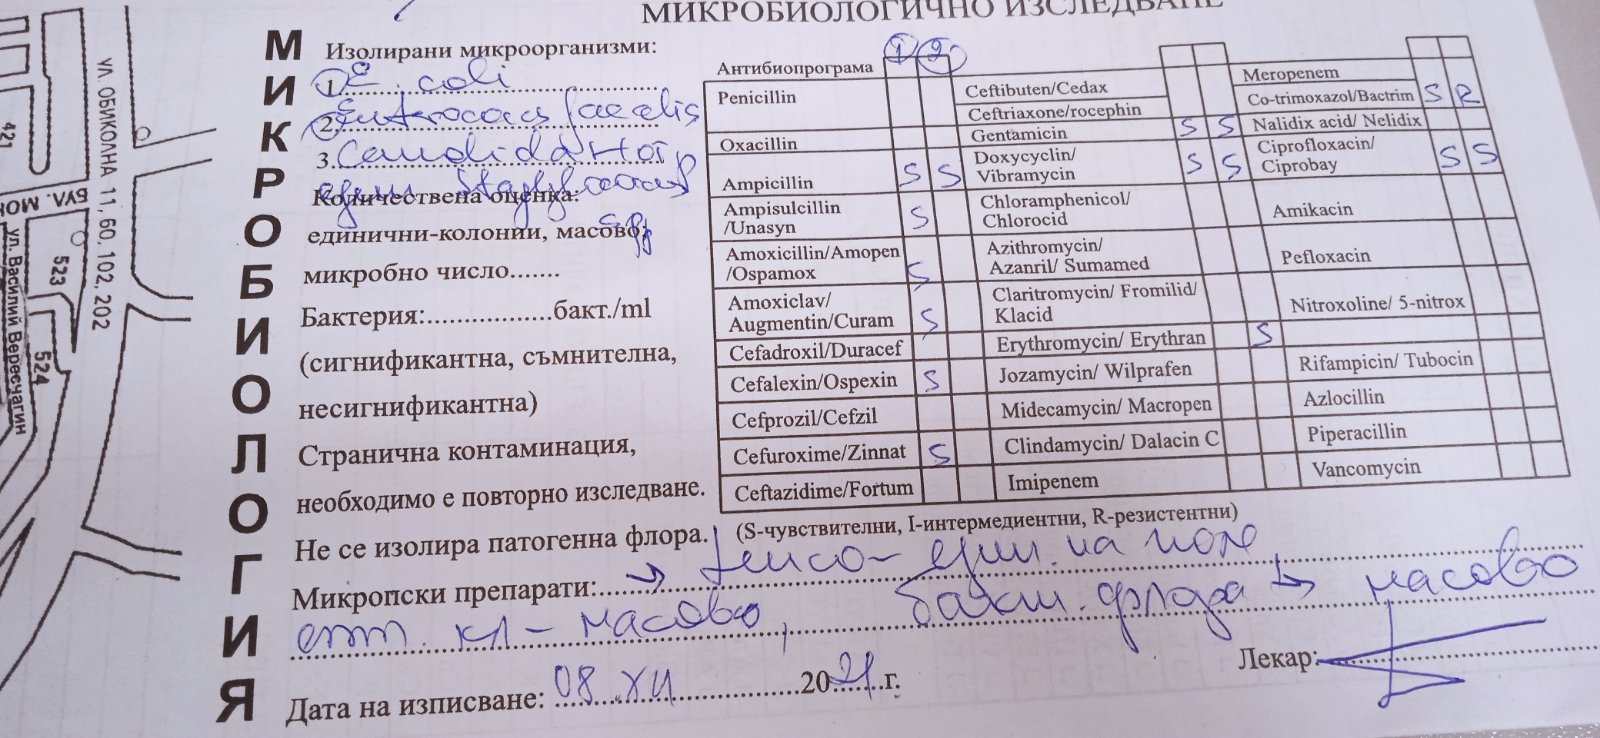 МИКРОБИОЛОГИЧНО ИЗСЛЕДВАНЕ
МИКРОБИОЛОГИЯ
Изолирани микроорганизми:
1. E. coli
2. Enterococcus faecalis
3. Candida
Количествена оценка:
единични-колонии, масово;
микробно число.......
Бактерия:..................бакт./ml
(сигнификантна, съмнителна,
несигнификантна)
Странична контаминация,
необходимо е повторно изследване.
Не се изолира патогенна флора.
Антибиопрограма 1 2
Penicillin
Oxacillin
Ampicillin S S
Ampisulcillin
/Unasyn S
Amoxicillin/Amopen
/Ospamox S
Amoxiclav/
Augmentin/Curam S
Cefadroxil/Duracef
Cefalexin/Ospexin S
Cefprozil/Cefzil
Cefuroxime/Zinnat S
Ceftazidime/Fortum
Ceftibuten/Cedax
Ceftriaxone/rocephin
Gentamicin S S
Doxycyclin/
Vibramycin S S
Chloramphenicol/
Chlorocid
Azithromycin/
Azanril/ Sumamed
Claritromycin/ Fromilid/
Klacid
Erythromycin/ Erythran S
Jozamycin/ Wilprafen
Midecamycin/ Macropen
Clindamycin/ Dalacin C
Imipenem
Meropenem
Co-trimoxazol/Bactrim S R
Nalidix acid/ Nelidix
Ciprofloxacin/
Ciprobay S S
Amikacin
Pefloxacin
Nitroxoline/ 5-nitrox
Rifampicin/ Tubocin
Azlocillin
Piperacillin
Vancomycin
(S-чувствителни, I-интермедиентни, R-резистентни)
Микропски препарати: → Левко- един. на поле,
епит. кл - масово, бакт. флора → масово
Дата на изписване: 08. XII 2021 г.
Лекар:
ул. ОБИКОЛНА 11, 60, 102, 202
БУЛ. МОН
ул. Василий Верешчагин
421
523
524